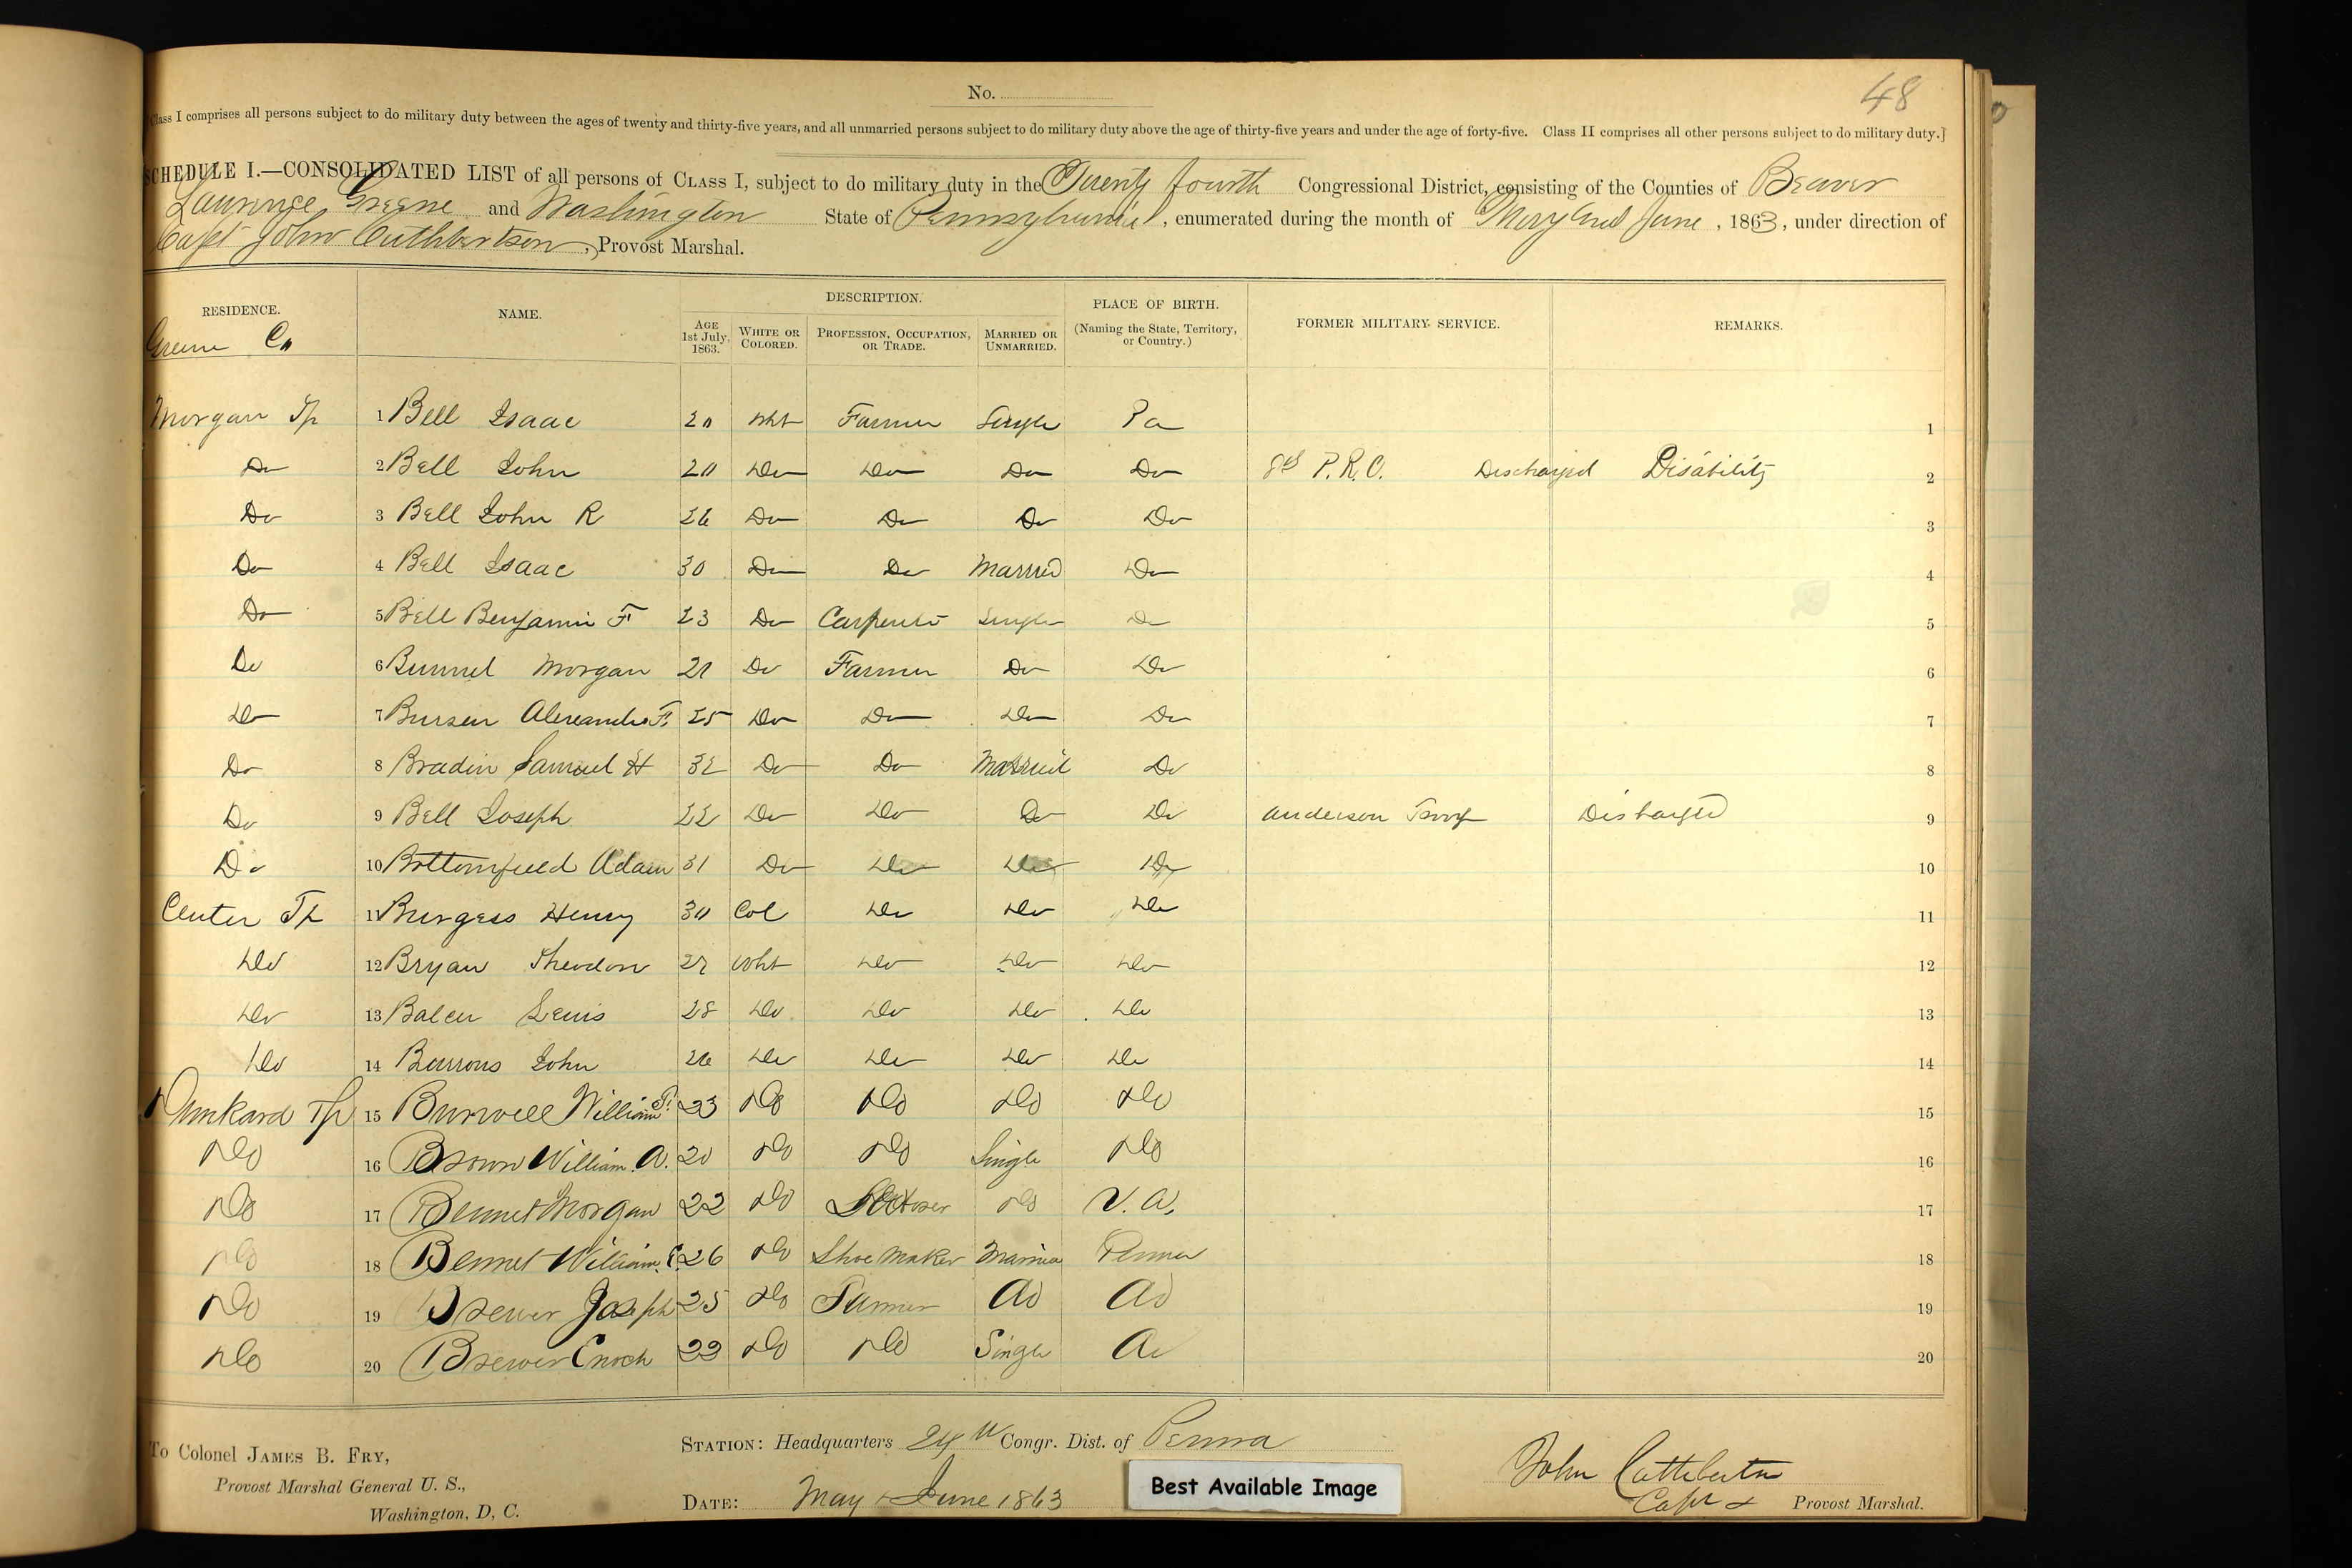 48
No.
Class I comprises all persons subject to do military duty between the ages of twenty and thirty-five years, and all unmarried persons subject to do military duty above the age of thirty-five years and under the age of forty-five. Class II comprises all other persons subject to do military duty.]
SCHEDULE I.—CONSOLIDATED LIST of all persons of CLASS I, subject to do military duty in the Twenty fourth Congressional District, consisting of the Counties of Beaver
Lawrence, Greene and Washington State of Pennsylvania, enumerated during the month of May and June, 1863, under direction of
Capt John Cuthbertson, Provost Marshal.
RESIDENCE. NAME. DESCRIPTION. PLACE OF BIRTH. FORMER MILITARY SERVICE. REMARKS.
AGE 1st July, 1863. WHITE OR COLORED. PROFESSION, OCCUPATION, OR TRADE. MARRIED OR UNMARRIED. (Naming the State, Territory, or Country.)
Greene Co
Morgan Tp 1 Bell Isaac 20 Wht Farmer Single Pa 1
Do 2 Bell John 20 Do Do Do Do P.R.C. Discharged Disability 2
Do 3 Bell John R 26 Do Do Do Do 3
Do 4 Bell Isaac 30 Do Do Married Do 4
Do 5 Bell Benjamin F 23 Do Carpenter Single Do 5
Do 6 Morgan 21 Do Farmer Do Do 6
Do 7 Alexander F. 25 Do Do Do Do 7
Do 8 Bradin Samuel H 32 Do Do Married Do 8
Do 9 Bell Joseph 22 Do Do Do Do Anderson Troop Discharged 9
Do 10 Bottomfield Adam 31 Do Do Do Do 10
Center Tp 11 Burgess Henry 30 Col Do Do Do 11
Do 12 Bryan Theodore 27 Wht Do Do Do 12
Do 13 Lewis 28 Do Do Do Do 13
Do 14 Burrows John 26 Do Do Do Do 14
Dunkard Tp 15 Burwell William 23 Do Do Do Do 15
Do 16 Brown William A. 20 Do Do Single Do 16
Do 17 Bennet Morgan 22 Do Do V.A. 17
Do 18 Bennet William E. 26 Do Shoe Maker Married Penna 18
Do 19 Brewer Joseph 25 Do Farmer Do Do 19
Do 20 Brewer Enoch 22 Do Do Single Do 20
To Colonel JAMES B. FRY,
Provost Marshal General U. S.,
Washington, D, C.
STATION: Headquarters 24th Congr. Dist. of Penna
DATE: May & June 1863
Best Available Image
John Cuthbertson
Capt & Provost Marshal.